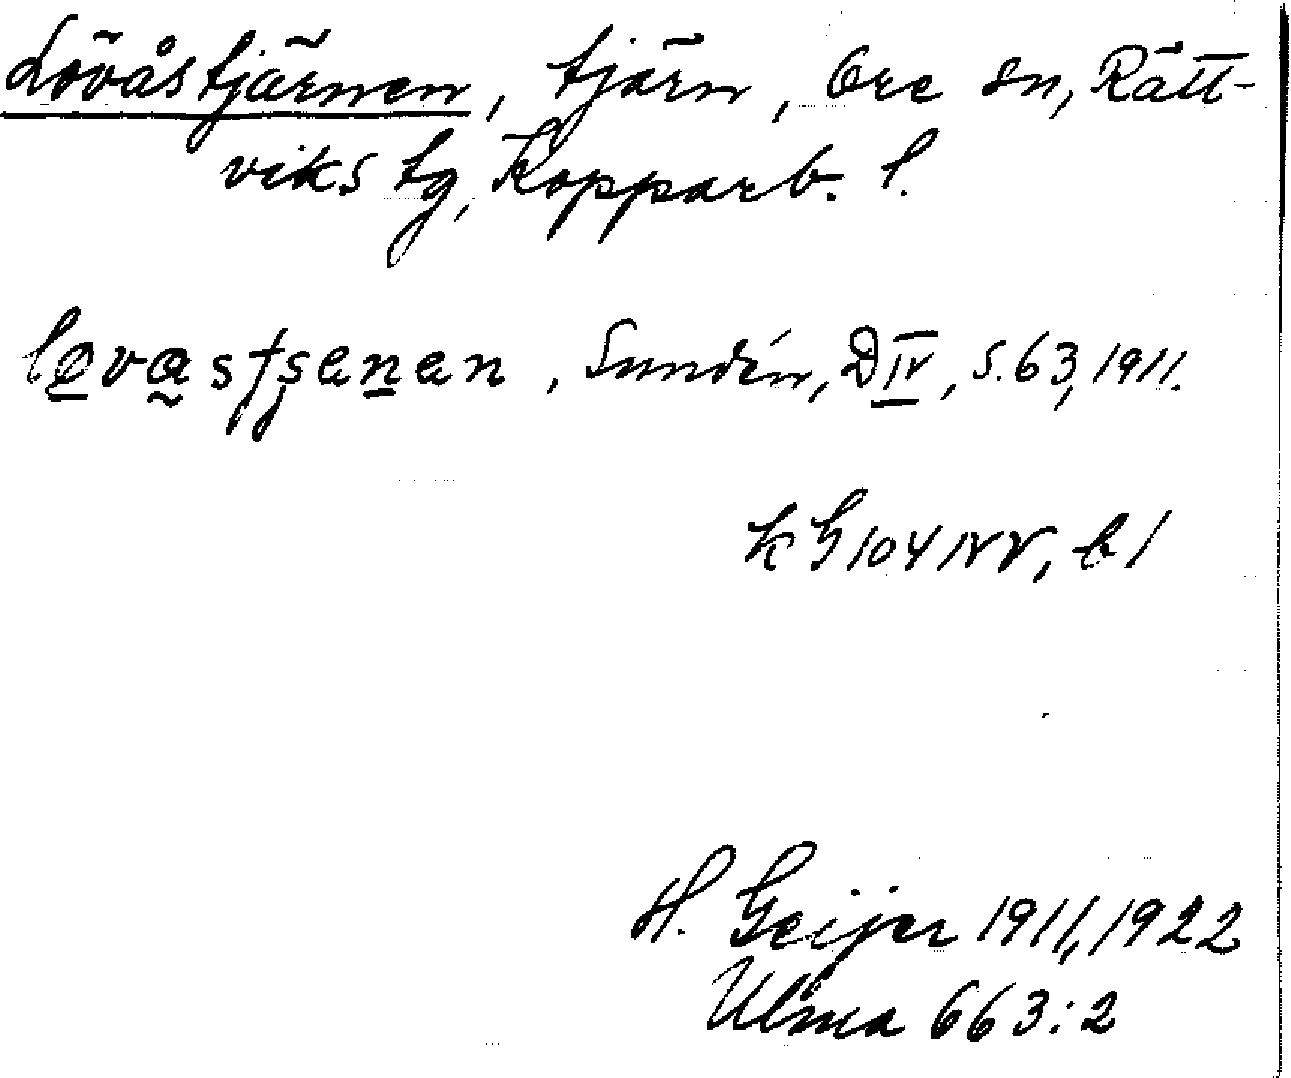 Lövåstjärnen, tjärn, Ore sn, Rätt-
viks tg, Kopparb. l.
Sundén, D IV, s. 63, 1911.
k G 104 IV V, b 1
H. Geijer 1911, 1922
Ulma 663:2